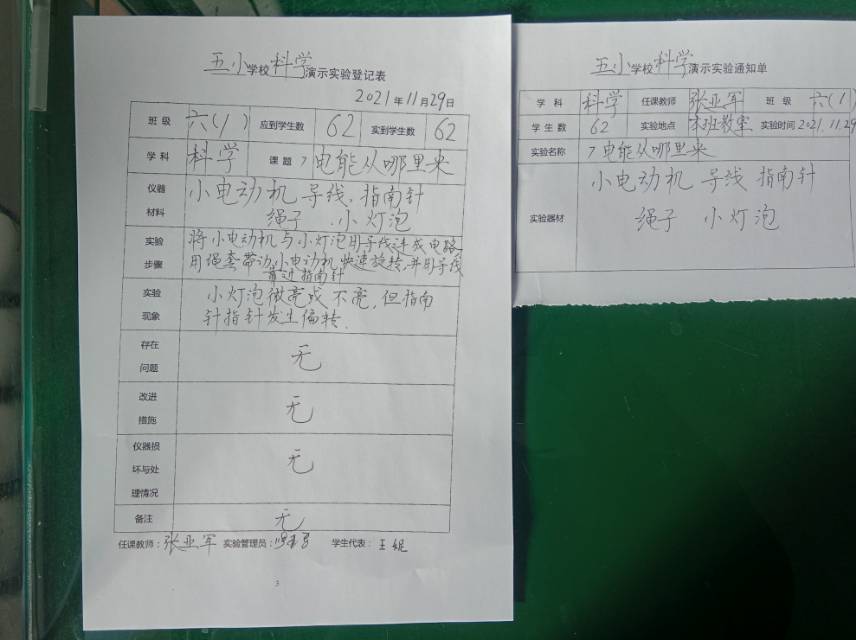 五小学校科学演示实验登记表
2021年11月29日
班级 六(1) 应到学生数 62 实到学生数 62
学科 科学 课题 7 电能从哪里来
仪器 小电动机 导线,指南针
材料 绳子 小灯泡
实验 将小电动机与小灯泡用导线连成电路
步骤 用绳套带动小电动机快速旋转,并用导线
靠近指南针
实验 小灯泡微亮或不亮,但指南
现象 针指针发生偏转.
存在
问题 无
改进
措施 无
仪器损
坏与处 无
理情况
备注 无
任课教师:张亚军 实验管理员: 学生代表:王妮
3
五小学校科学演示实验通知单
学科 科学 任课教师 张亚军 班级 六(1)
学生数 62 实验地点 本班教室 实验时间 2021.11.29
实验名称 7 电能从哪里来
小电动机 导线 指南针
实验器材 绳子 小灯泡